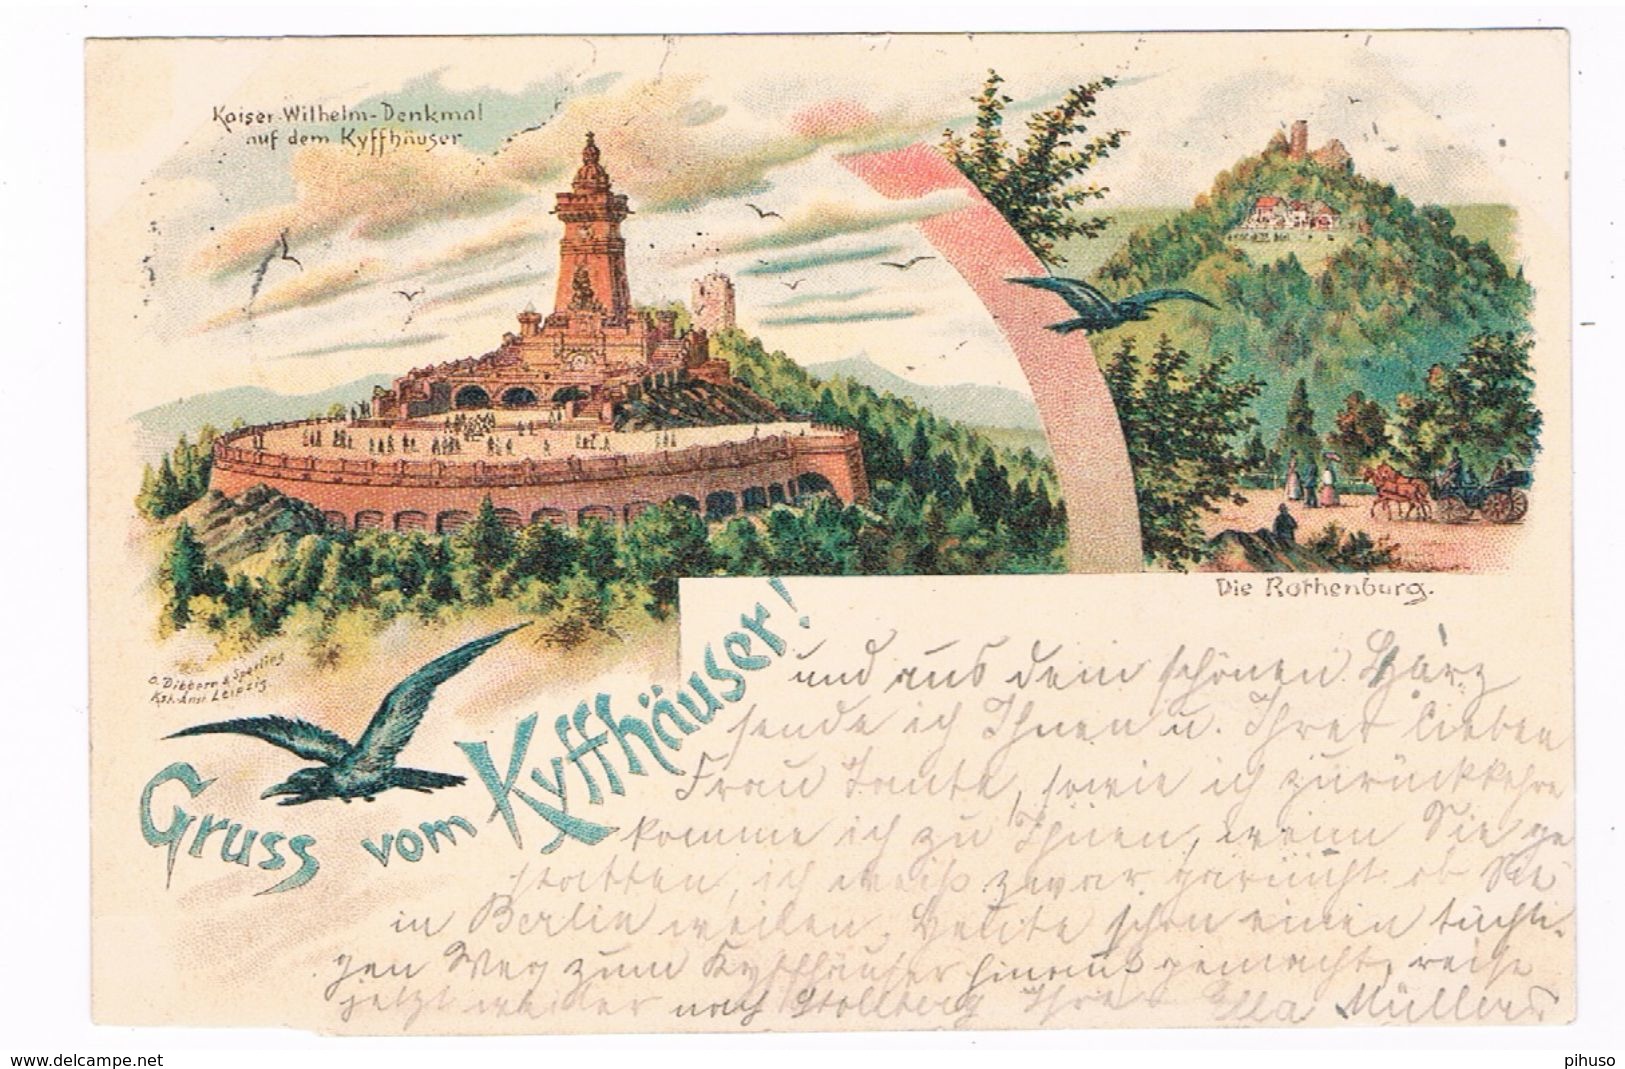 Kaiser-Wilhelm-Denkmal
auf dem Kyffhäuser
Die Rothenburg.
O. Dibbern & Sperling
Kst.-Anst. Leipzig.
Gruss vom Kyffhäuser!
und aus dem schönen Harz
sende ich Ihnen u. Ihrer lieben
Frau Tante, sowie ich zurückkehre
komme ich zu Ihnen, wenn Sie ge
statten, ich weiß zwar garnicht ob Sie
in Berlin weilen. Heute schon einen tüchti-
gen Weg zum Kyffhäuser hinauf gemacht, reise
jetzt weiter nach Stollberg Ihre Ella Müller
www.delcampe.net
pihuso